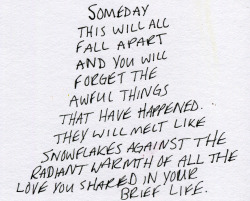 SOMEDAY
THIS WILL ALL
FALL APART
AND YOU WILL
FORGET THE
AWFUL THINGS
THAT HAVE HAPPENED.
THEY WILL MELT LIKE
SNOWFLAKES AGAINST THE
RADIANT WARMTH OF ALL THE
LOVE YOU SHARED IN YOUR
BRIEF LIFE.